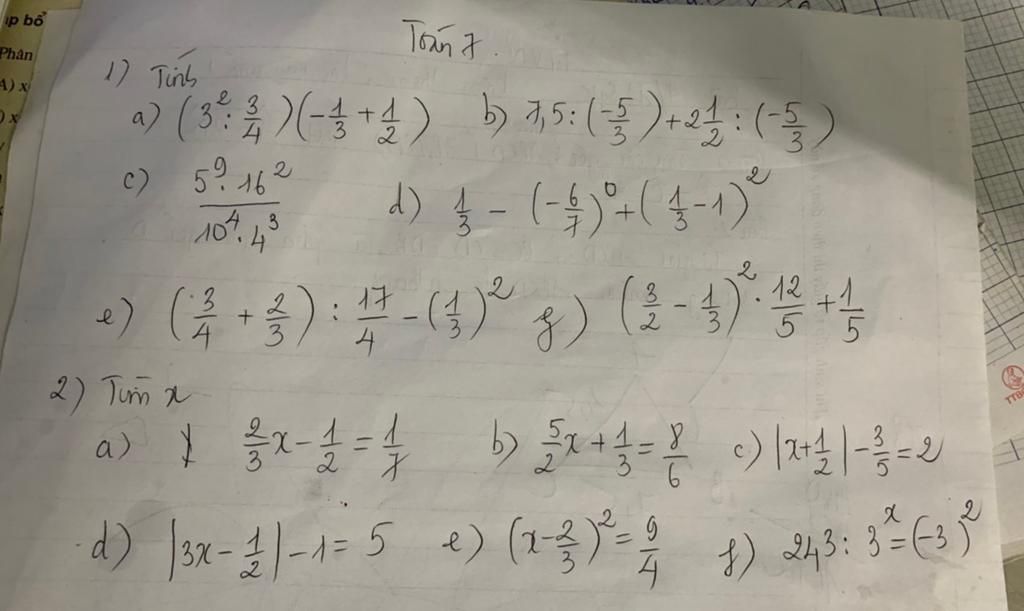 ập bổ
Phân
A) x
) x
Toán 7.
1) Tính
a) (3² : 3/4)(-1/3 + 1/2) b) 7,5 : (-5/3) + 2 1/2 : (-5/3)
c) (5⁹ · 16²)/(10⁴ · 4³) d) 1/3 - (-6/7)⁰ + (1/3 - 1)²
e) (3/4 + 2/3) : 17/4 - (1/3)² f) (3/2 - 1/3)² · 12/5 + 1/5
2) Tìm x
a) 2/3x - 1/2 = 1/7 b) 5/2x + 1/3 = 8/6 c) |x + 1/2| - 3/5 = 2
d) |3x - 1/2| - 1 = 5 e) (x - 2/3)² = 9/4 f) 243 : 3ˣ = (-3)²